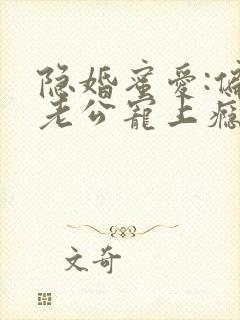 隐婚蜜爱:偏
老公宠上瘾
文奇